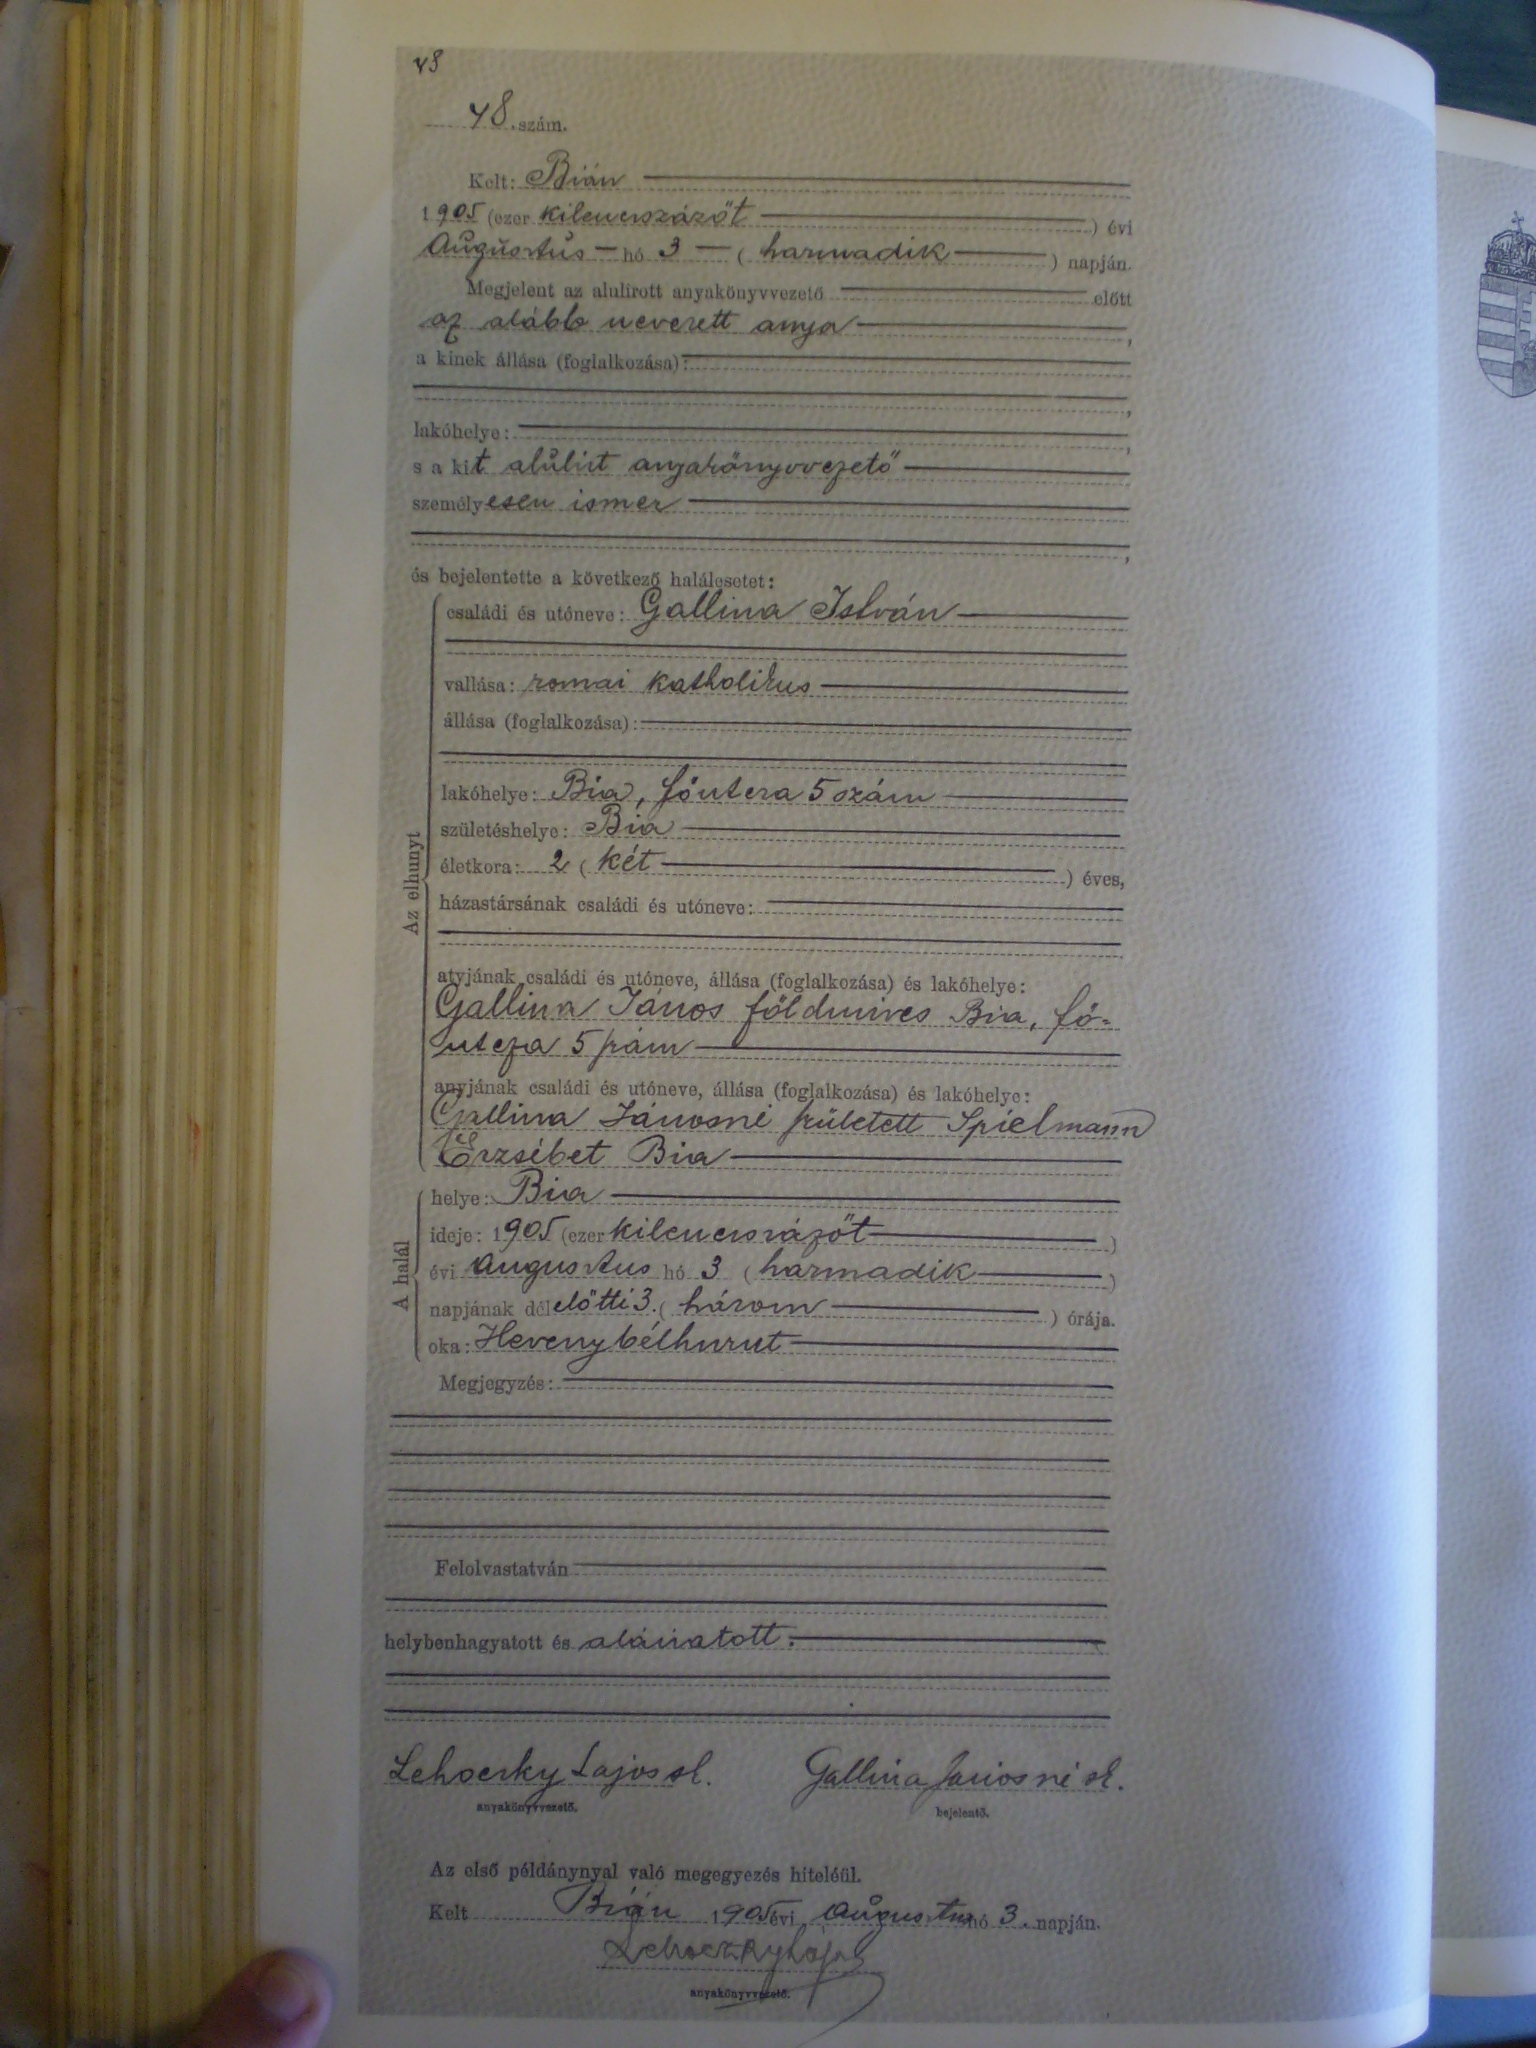 48
48. szám.
Kelt: Bián
1905 (ezer kilencszázöt) évi
Augustus hó 3 (harmadik) napján.
Megjelent az alulirott anyakönyvvezető előtt
az alább nevezett anya,
a kinek állása (foglalkozása):
,
lakóhelye: ,
s a kit alulirt anyakönyvvezető
személyesen ismer
,
és bejelentette a következő halálesetet:
Az elhunyt
családi és utóneve: Gallina István
vallása: romai katholikus
állása (foglalkozása):
lakóhelye: Bia, főutcza 5 szám
születéshelye: Bia
életkora: 2 (két) éves,
házastársának családi és utóneve:
atyjának családi és utóneve, állása (foglalkozása) és lakóhelye:
Gallina János földmives Bia, fő-
utcza 5 szám
anyjának családi és utóneve, állása (foglalkozása) és lakóhelye:
Gallina Jánosné született Spielmann
Erzsébet Bia
A halál
helye: Bia
ideje: 1905 (ezer kilencszázöt)
évi Augustus hó 3 (harmadik)
napjának délelőtti 3. (három) órája.
oka: Heveny bélhurut
Megjegyzés:
Felolvastatván
helybenhagyatott és aláiratott.
Lehoczky Lajos sk. Gallina Jánosné sk.
anyakönyvvezető. bejelentő.
Az első példánynyal való megegyezés hiteléül.
Kelt Bián 1905 évi Augustus hó 3. napján.
Lehoczky Lajos
anyakönyvvezető.